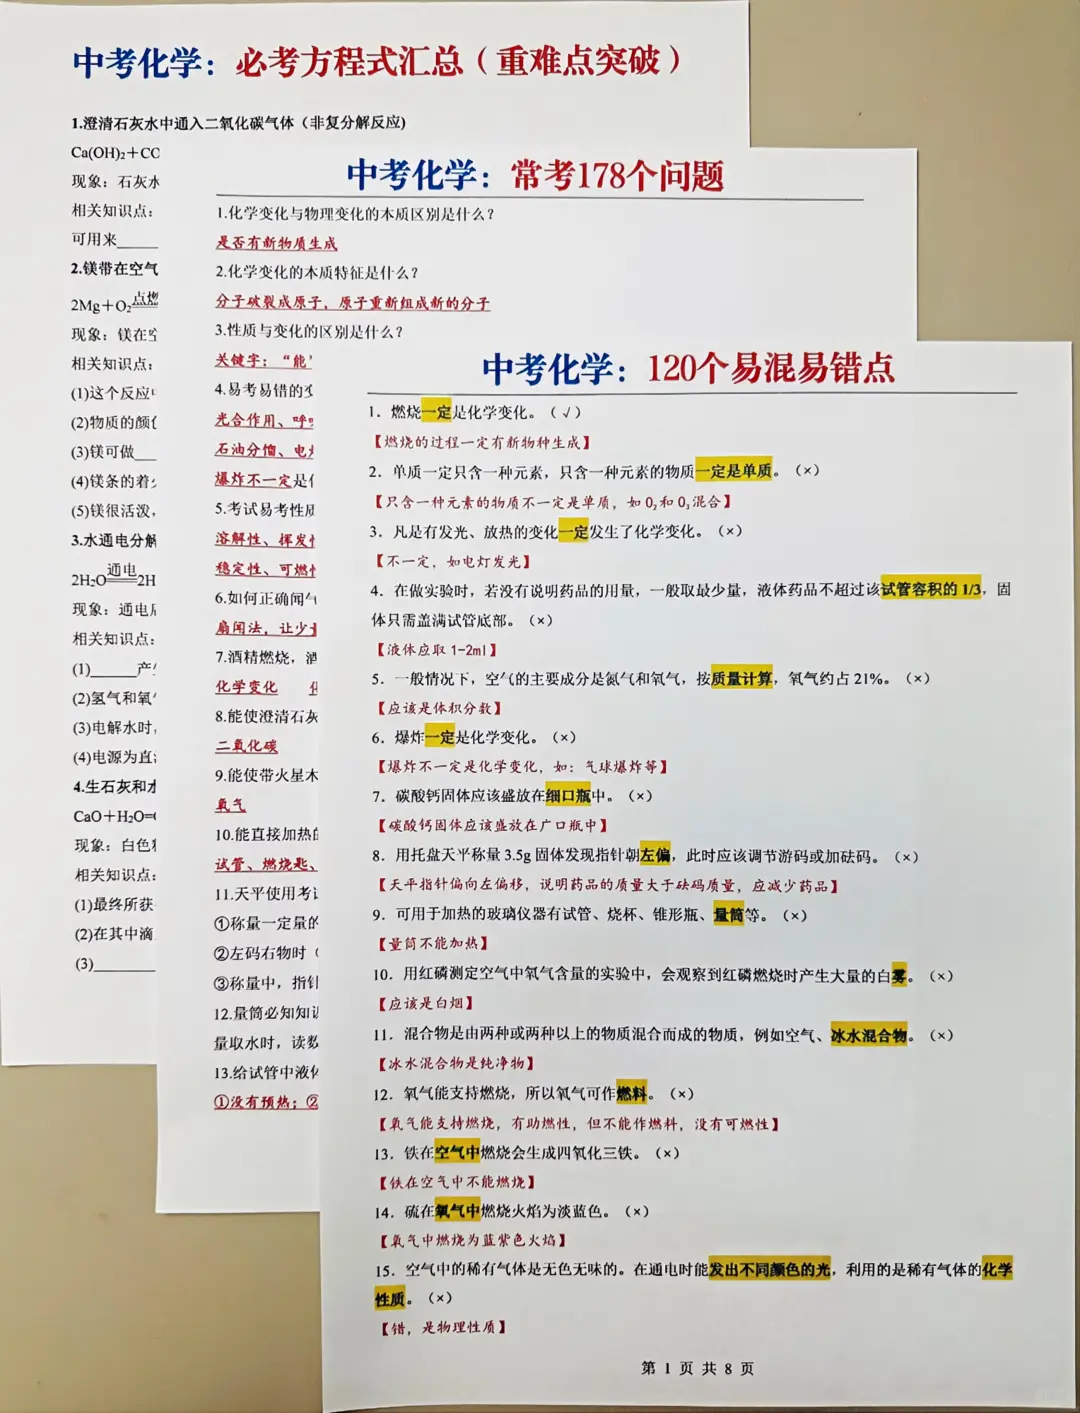 中考化学：必考方程式汇总（重难点突破）
1.澄清石灰水中通入二氧化碳气体（非复分解反应)
Ca(OH)₂＋CO
现象：石灰水
相关知识点：
可用来______
2.镁带在空气
2Mg＋O₂点燃
现象：镁在空
相关知识点：
(1)这个反应
(2)物质的颜色
(3)镁可做___
(4)镁条的着火
(5)镁很活泼，
3.水通电分解
2H₂O通电2H
现象：通电后
相关知识点：
(1)______产生
(2)氢气和氧气
(3)电解水时，
(4)电源为直流
4.生石灰和水
CaO＋H₂O=
现象：白色粉
相关知识点：
(1)最终所获
(2)在其中滴
(3)________
中考化学：常考178个问题
1.化学变化与物理变化的本质区别是什么？
是否有新物质生成
2.化学变化的本质特征是什么？
分子破裂成原子，原子重新组成新的分子
3.性质与变化的区别是什么？
关键字：“能”
4.易考易错的变
光合作用、呼吸
石油分馏、电灯
爆炸不一定是化
5.考试易考性质
溶解性、挥发性
稳定性、可燃性
6.如何正确闻气
扇闻法，让少量
7.酒精燃烧，酒
化学变化
8.能使澄清石灰
二氧化碳
9.能使带火星木
氧气
10.能直接加热的
试管、燃烧匙、
11.天平使用考试
①称量一定量的
②左码右物时（
③称量中，指针
12.量筒必知知识
量取水时，读数
13.给试管中液体
①没有预热；②
中考化学：120个易混易错点
1．燃烧一定是化学变化。（√）
【燃烧的过程一定有新物种生成】
2．单质一定只含一种元素，只含一种元素的物质一定是单质。（×）
【只含一种元素的物质不一定是单质，如O₂和O₃混合】
3．凡是有发光、放热的变化一定发生了化学变化。（×）
【不一定，如电灯发光】
4．在做实验时，若没有说明药品的用量，一般取最少量，液体药品不超过该试管容积的1/3，固
体只需盖满试管底部。（×）
【液体应取1-2ml】
5．一般情况下，空气的主要成分是氮气和氧气，按质量计算，氧气约占21%。（×）
【应该是体积分数】
6．爆炸一定是化学变化。（×）
【爆炸不一定是化学变化，如：气球爆炸等】
7．碳酸钙固体应该盛放在细口瓶中。（×）
【碳酸钙固体应该盛放在广口瓶中】
8．用托盘天平称量3.5g固体发现指针朝左偏，此时应该调节游码或加砝码。（×）
【天平指针偏向左偏移，说明药品的质量大于砝码质量，应减少药品】
9．可用于加热的玻璃仪器有试管、烧杯、锥形瓶、量筒等。（×）
【量筒不能加热】
10．用红磷测定空气中氧气含量的实验中，会观察到红磷燃烧时产生大量的白雾。（×）
【应该是白烟】
11．混合物是由两种或两种以上的物质混合而成的物质，例如空气、冰水混合物。（×）
【冰水混合物是纯净物】
12．氧气能支持燃烧，所以氧气可作燃料。（×）
【氧气能支持燃烧，有助燃性，但不能作燃料，没有可燃性】
13．铁在空气中燃烧会生成四氧化三铁。（×）
【铁在空气中不能燃烧】
14．硫在氧气中燃烧火焰为淡蓝色。（×）
【氧气中燃烧为蓝紫色火焰】
15．空气中的稀有气体是无色无味的。在通电时能发出不同颜色的光，利用的是稀有气体的化学
性质。（×）
【错，是物理性质】
第 1 页 共 8 页